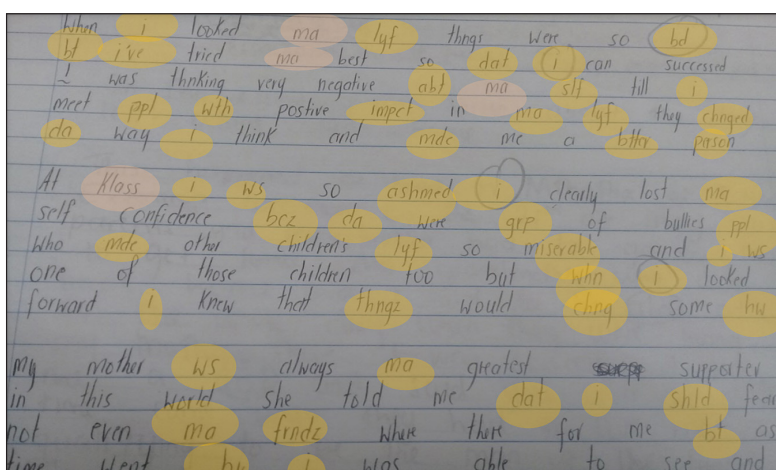 When i looked ma lyf thngs were so bd
bt i've tried ma best so dat i can successed
I was thnking very negative abt ma slf till i
meet ppl wth postive impct in ma lyf they chnged
da way i think and mde me a bttr person
At Klass i ws so ashmed i clearly lost ma
self confidence bcz da were grp of bullies ppl
Who mde other children's lyf so miserable and i ws
one of those children too but whn i looked
forward i Knew that thngz would chng some hw
my mother ws always ma greatest supporter
in this world she told me dat i shld fear
not even ma frndz where there for me bt as
time went by i was able to see and